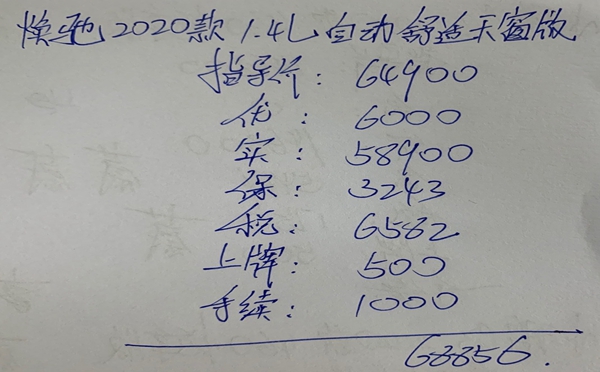 焕驰2020款 1.4L自动舒适天窗版
指导价: 64900
优: 6000
实: 58900
保: 3243
税: 6582
上牌: 500
手续: 1000
68856.